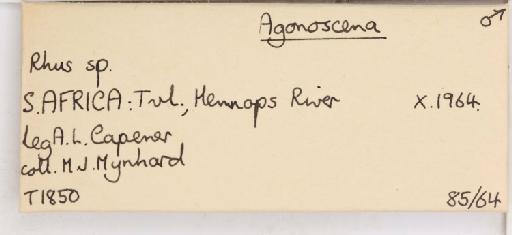 Agonoscena ♂
Rhus sp.
S.AFRICA: Tvl., Hennops River X.1964.
leg A.L. Capener
coll. M.J. Mynhard
T1850 85/64